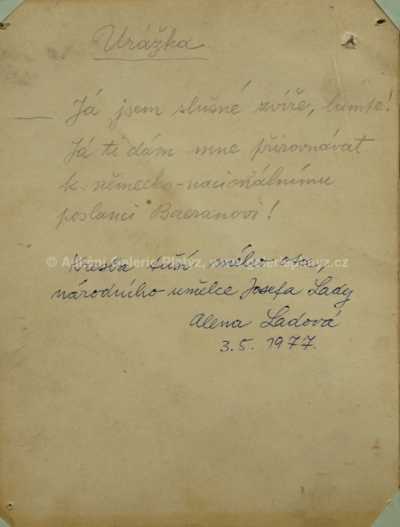 Urážka
— Já jsem slušné zvíře, lumpe!
Já ti dám mne přirovnávat
k německo-nacionálnímu
poslanci Baeranovi!
© Aukční Galerie Platýz, www.galerieplatyz.cz
Kresba tuší mého otce,
národního umělce Josefa Lady
Alena Ladová
3. 5. 1977.